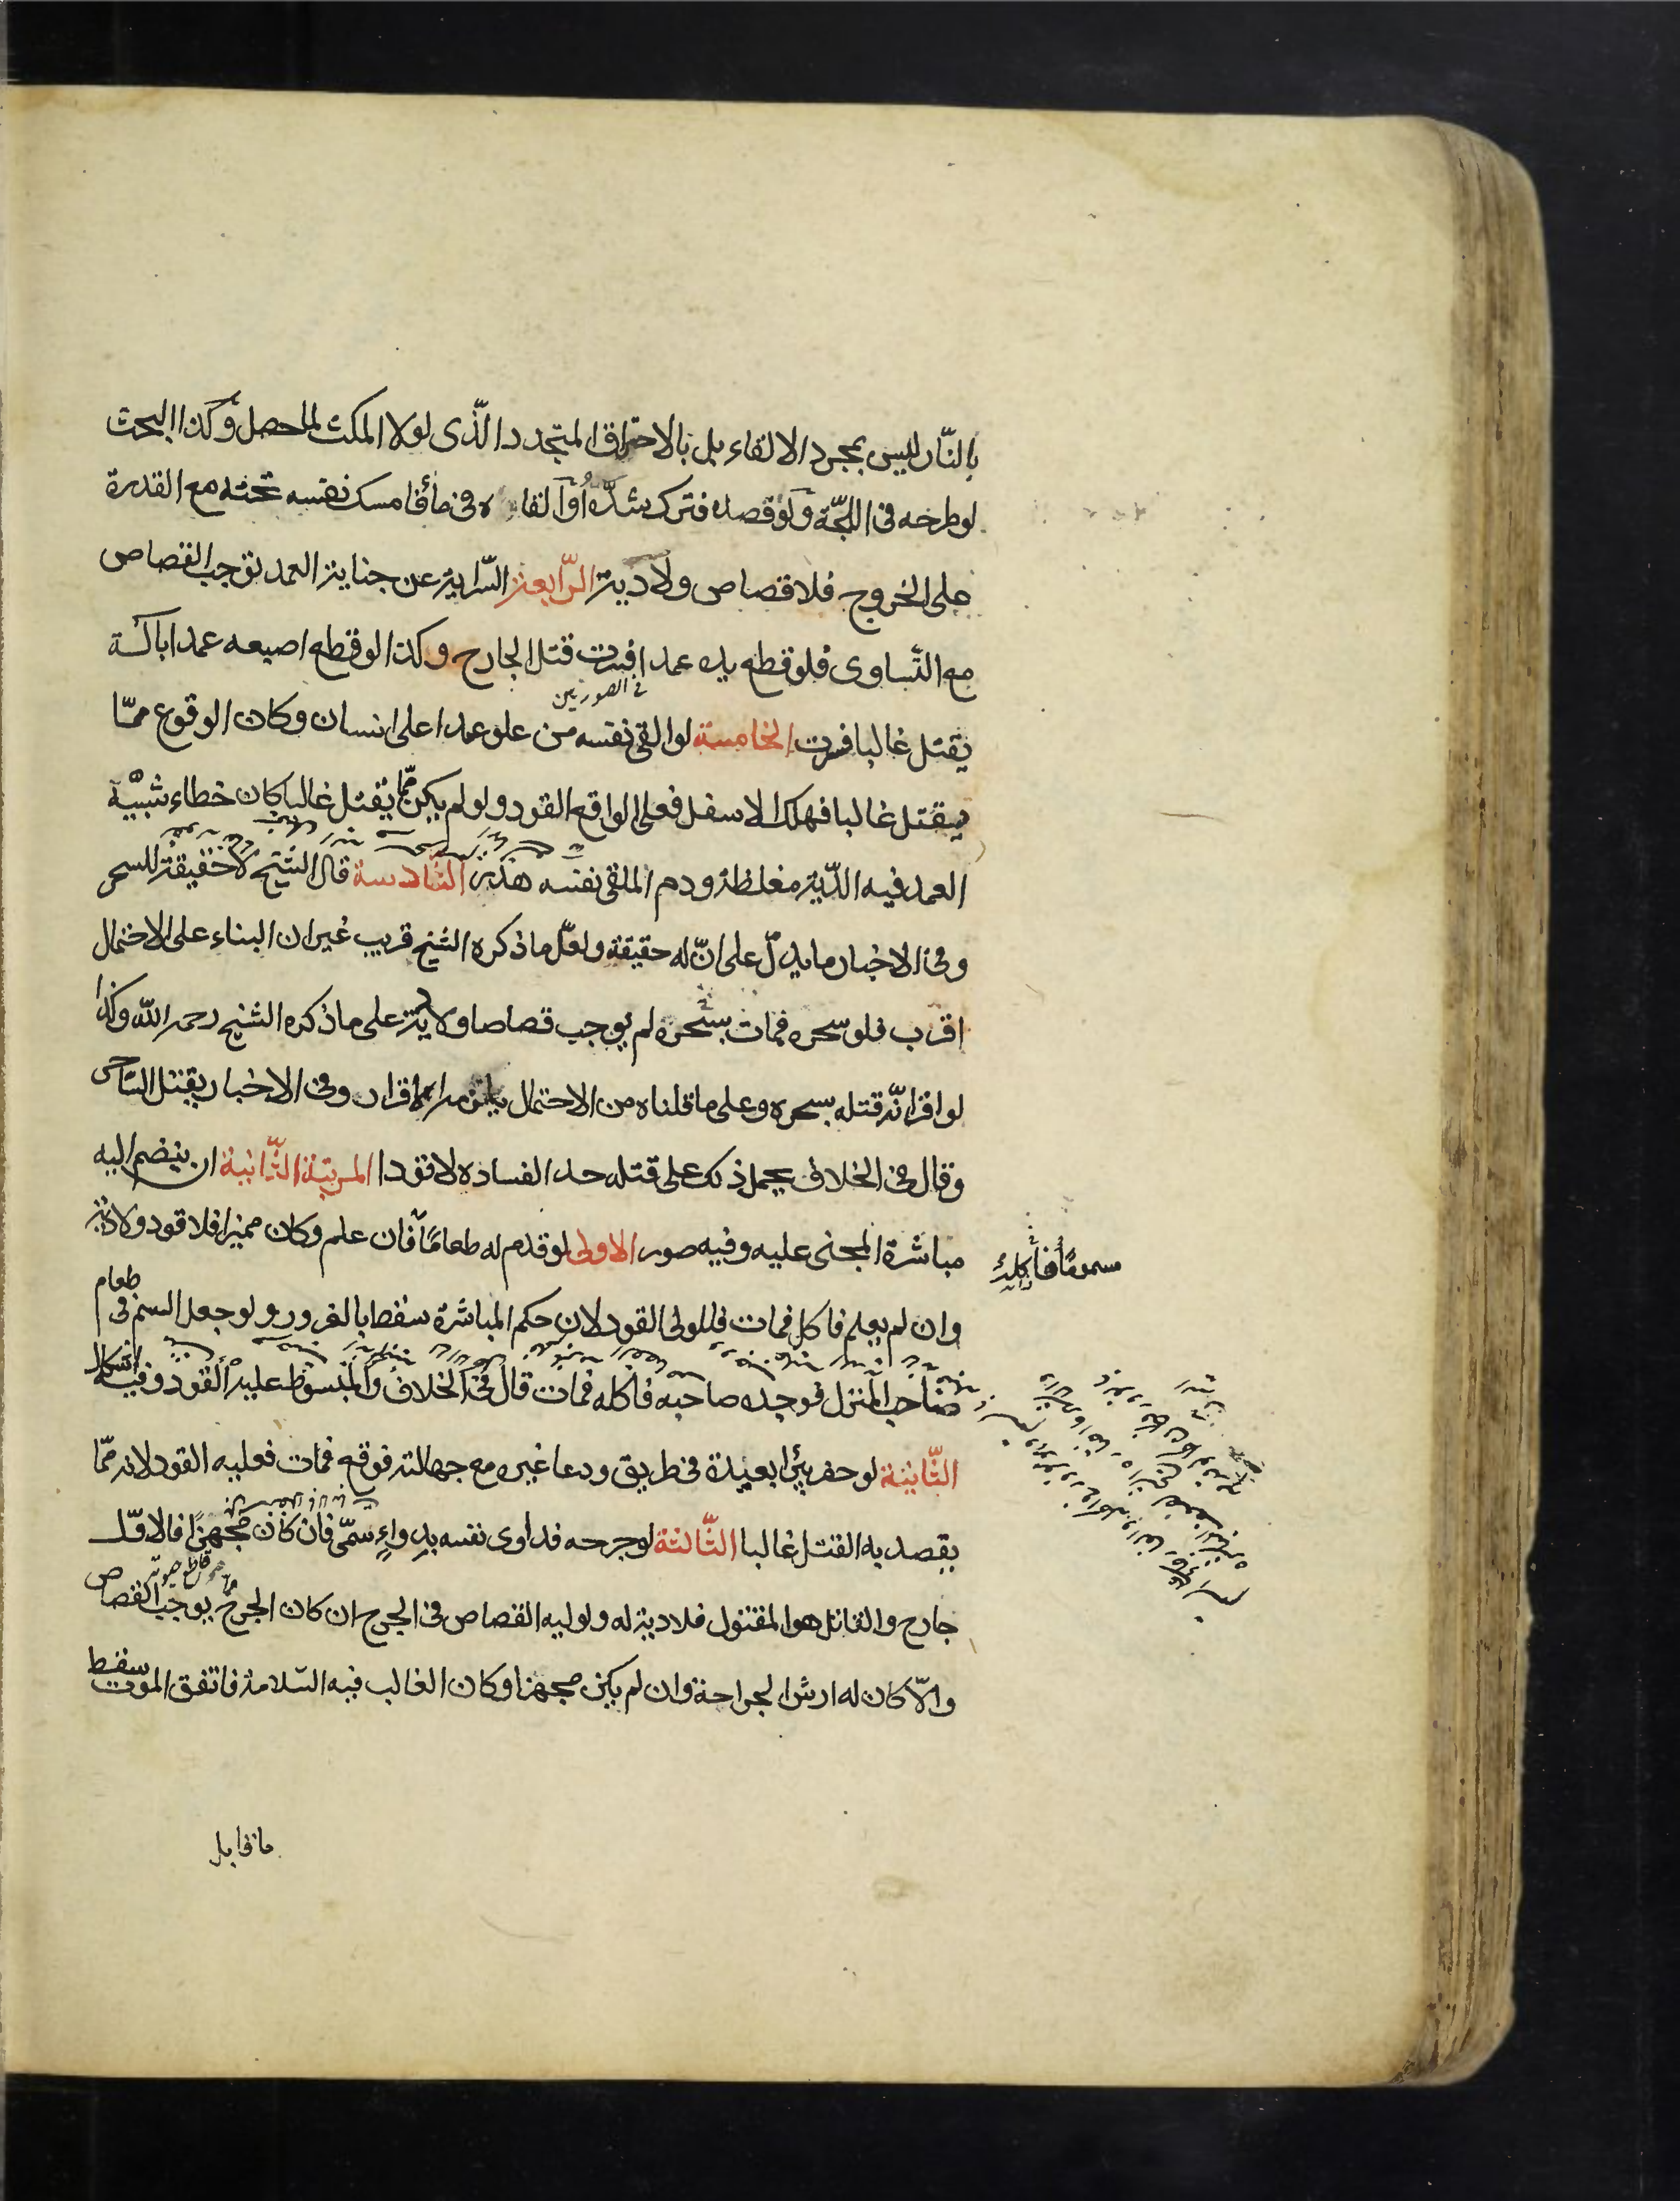 بالنّار ليس بمجرد الالقاء بل بالاحتراق المتجدد الّذى لولا المكث لما حصل وكذا البحث
لو طرحه فى اللجّة ولو فصده فترك شدّه او القاه فى ماء فامسك نفسه تحته مع القدرة
على الخروج فلا قصاص ولا دية الرّابعة السّراية عن جناية العمد توجب القصاص
مع التّساوى فلو قطع يده عمدا فسرت قتل الجارح وكذا لو قطع اصبعه عمدا بآلة
فى الصورتين
تقتل غالبا فسرت الخامسة لو القى نفسه من علو عمدا على انسان وكان الوقوع ممّا
يقتل غالبا فهلك الاسفل فعلى الواقع القود ولو لم يكن ممّا يقتل غالبا كان خطاء شبيه
العمد فيه الدّية مغلظة ودم الملقى نفسه هذر السّادسة قال الشّيخ لا حقيقة للسحر
وفى الاخبار ما يدلّ على انّ له حقيقة ولعلّ ما ذكره الشيخ قريب غير ان البناء على الاحتمال
اقرب فلو سحره فمات بسحره لم يوجب قصاصا ولا دية على ما ذكره الشيخ رحمه اللّه وكذا
لو اقر انّه قتله بسحره وعلى ما قلناه من الاحتمال يلزمه الاقرار وفى الاخبار يقتل السّاحر
وقال فى الخلاف يحمل ذلك على قتله حد الفساده لا قودا المرتبة الثّانية ان ينضم اليه
مباشرة المجنى عليه وفيه صور الاولى لو قدم له طعامًا فان علم وكان مميزا فلا قود ولا دية
مسمومًا فاكله
وان لم يعلم فاكل فمات فللولى القود لان حكم المباشرة سقط بالغرور ولو جعل السم فى طعام
صاحب المنزل فوجده صاحبه فاكله فمات قال فى الخلاف والمبسوط عليه القود وفيه اشكال
الثّانية لو حفر بئرا بعيدة فى طريق ودعا غيره مع جهالته فوقع فمات فعليه القود لانه ممّا
يقصد به القتل غالبا الثّالثة لو جرحه فداوى نفسه بدواءٍ سمّى فان كان مجهزًا فالاوّل
جارح والقاتل هو المقتول فلا دية له ولوليه القصاص فى الجرح ان كان الجرح يوجب القصاص
والّا كان له ارش الجراحة وان لم يكن مجهزا وكان الغالب فيه السّلامة فاتفق الموت سقط
ما قابل